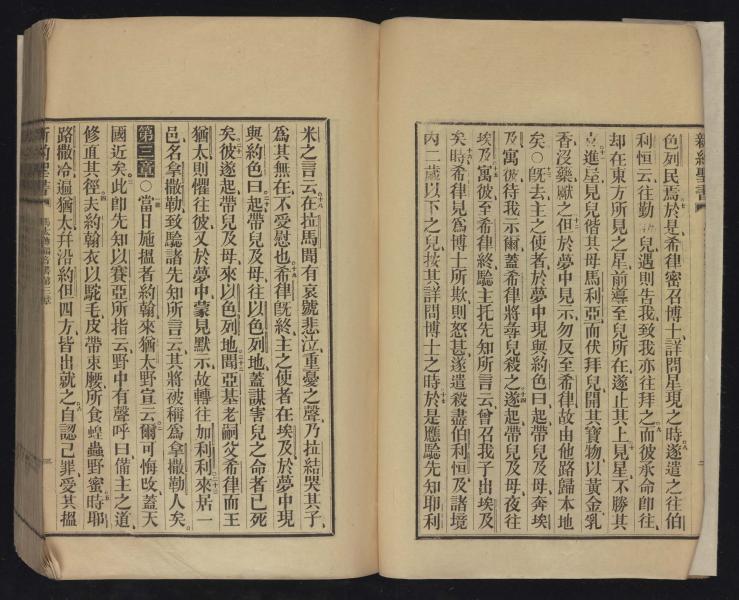 新約聖書
色列民焉於是希律密召博士詳問星現之時遂遣之往伯
利恒云往勤 兒遇則吿我致我亦往拜之而彼承命卽往
却在東方所見之星前導至兒所在遂止其上見星不勝其
喜進屋見兒偕其母馬利亞而伏拜兒開其寶物以黃金乳
香沒藥獻之但於夢中見示勿反至希律故由他路歸本地
矣○旣去主之使者於夢中現與約色曰起帶兒及母奔埃
及寓彼待我示爾蓋希律將尋兒殺之遂起帶兒及母夜往
埃及寓彼至希律終驗主托先知所言云曾召我子出埃及
矣時希律見爲博士所欺則怒甚遂遣殺盡伯利恒及諸境
內二歲以下之兒按其詳問博士之時於是應驗先知耶利
米之言云在拉馬聞有哀號悲泣重憂之聲乃拉結哭其子
爲其無在不受慰也希律旣終主之使者在埃及於夢中現
與約色曰起帶兒及母往以色列地蓋謀害兒之命者已死
矣彼遂起帶兒及母來以色列地聞亞基老嗣父希律而王
猶太則懼往彼又於夢中蒙見默示故轉往加利利來居一
邑名拿撒勒致驗諸先知所言云其將被稱爲拿撒勒人矣
第三章○當日施搵者約翰來猶太野宣云爾可悔攺蓋天
國近矣此卽先知以賽亞所指云野中有聲呼曰備主之道
修直其徑夫約翰衣以駝毛皮帶束腰所食蝗蟲野蜜時耶
路撒冷遍猶太幷沿約但四方皆出就之自認己罪受其搵
新約聖書